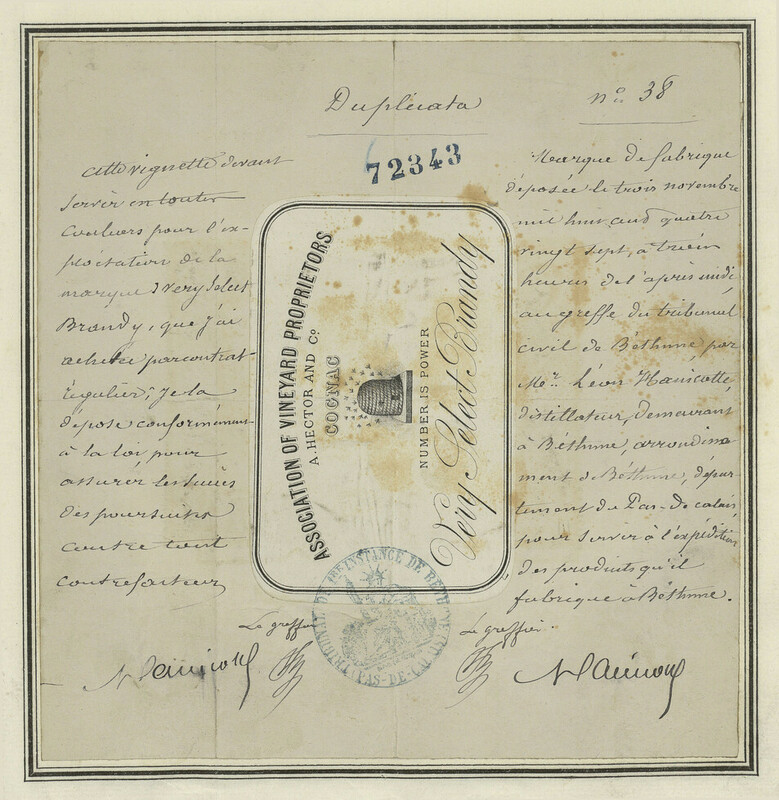 Duplicata
n° 38
72343
Cette vignette devant
servir en toutes
couleurs pour l'ex-
ploitation de la
marque : Very Select
Brandy, que j'ai
achetée par contrat
régulier, je la
dépose conformément
à la loi pour
assurer les suites
des poursuites
contre tout
contrefacteur
ASSOCIATION OF VINEYARD PROPRIETORS
A. HECTOR AND C°.
COGNAC
NUMBER IS POWER
Very Select Brandy
Marque de fabrique
déposée le trois novembre
mil huit cent quatre
vingt sept, à
heures de l'après midi
au greffe du tribunal
civil de Béthune par
Mr. Léon Hanicotte,
distillateur, demeurant
à Béthune, arrondisse
ment de Béthune, dépar
tement du Pas-de-calais,
pour servir à l'expédition
des produits qu'il
fabrique à Béthune.
Le greffier
Le greffier
TRIBUNAL DE 1RE INSTANCE DE BETHUNE
(PAS-DE-CALAIS)